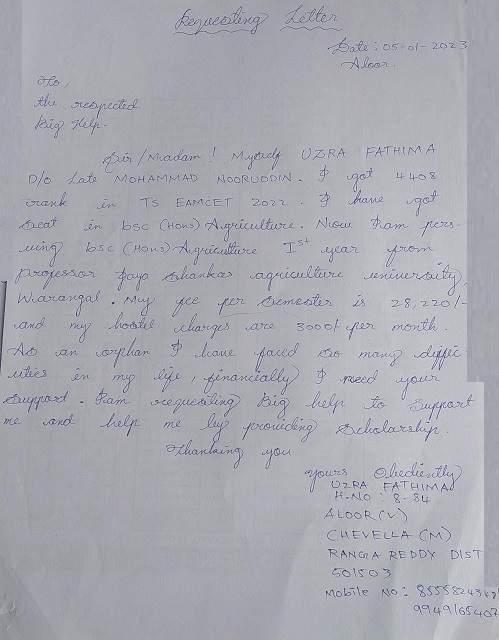 Requesting Letter
Date: 05-01-2023
Aloor.
To,
the respected
Big Help.
Sir/Madam! Myself UZRA FATHIMA
D/o Late MOHAMMAD NOORUDDIN. I got 4408
rank in TS EAMCET 2022. I have got
Seat in bsc (Hons) Agriculture. Now I am pers-
uing bsc (Hons) Agriculture Ist year from
professor Jaya Shankar agriculture university,
Warangal. My fee per Semester is 28,220/-
and my hostel charges are 3000/- per month.
As an orphan I have faced so many diffic-
ulties in my life, financially I need your
Support. I am requesting Big help to Support
me and help me by providing Scholarship.
Thanking you
yours Obediently
UZRA FATHIMA
H.NO: 8-84
ALOOR (V)
CHEVELLA (M)
RANGA REDDY DIST
501503
Mobile No:
9949165407